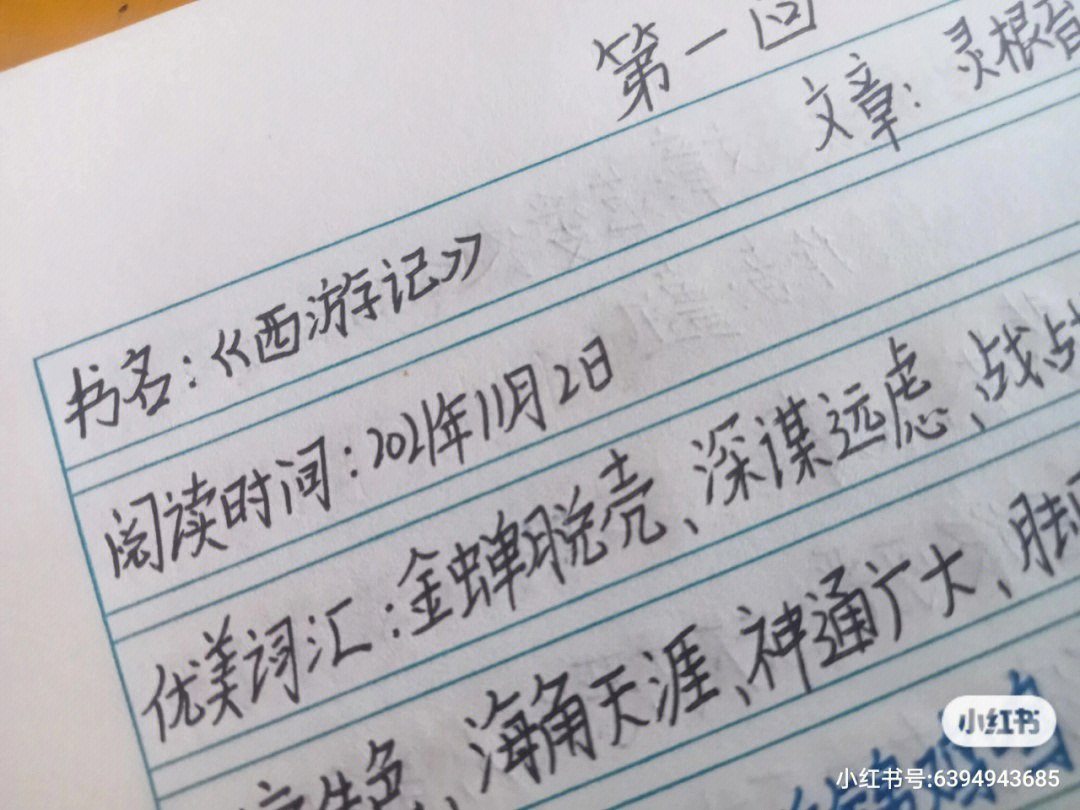 第一回
文章：灵根育
书名：《西游记》
阅读时间：2021年11月2日
优美词汇：金蝉脱壳、深谋远虑、战战
色、海角天涯、神通广大、
小红书
小红书号:6394943685